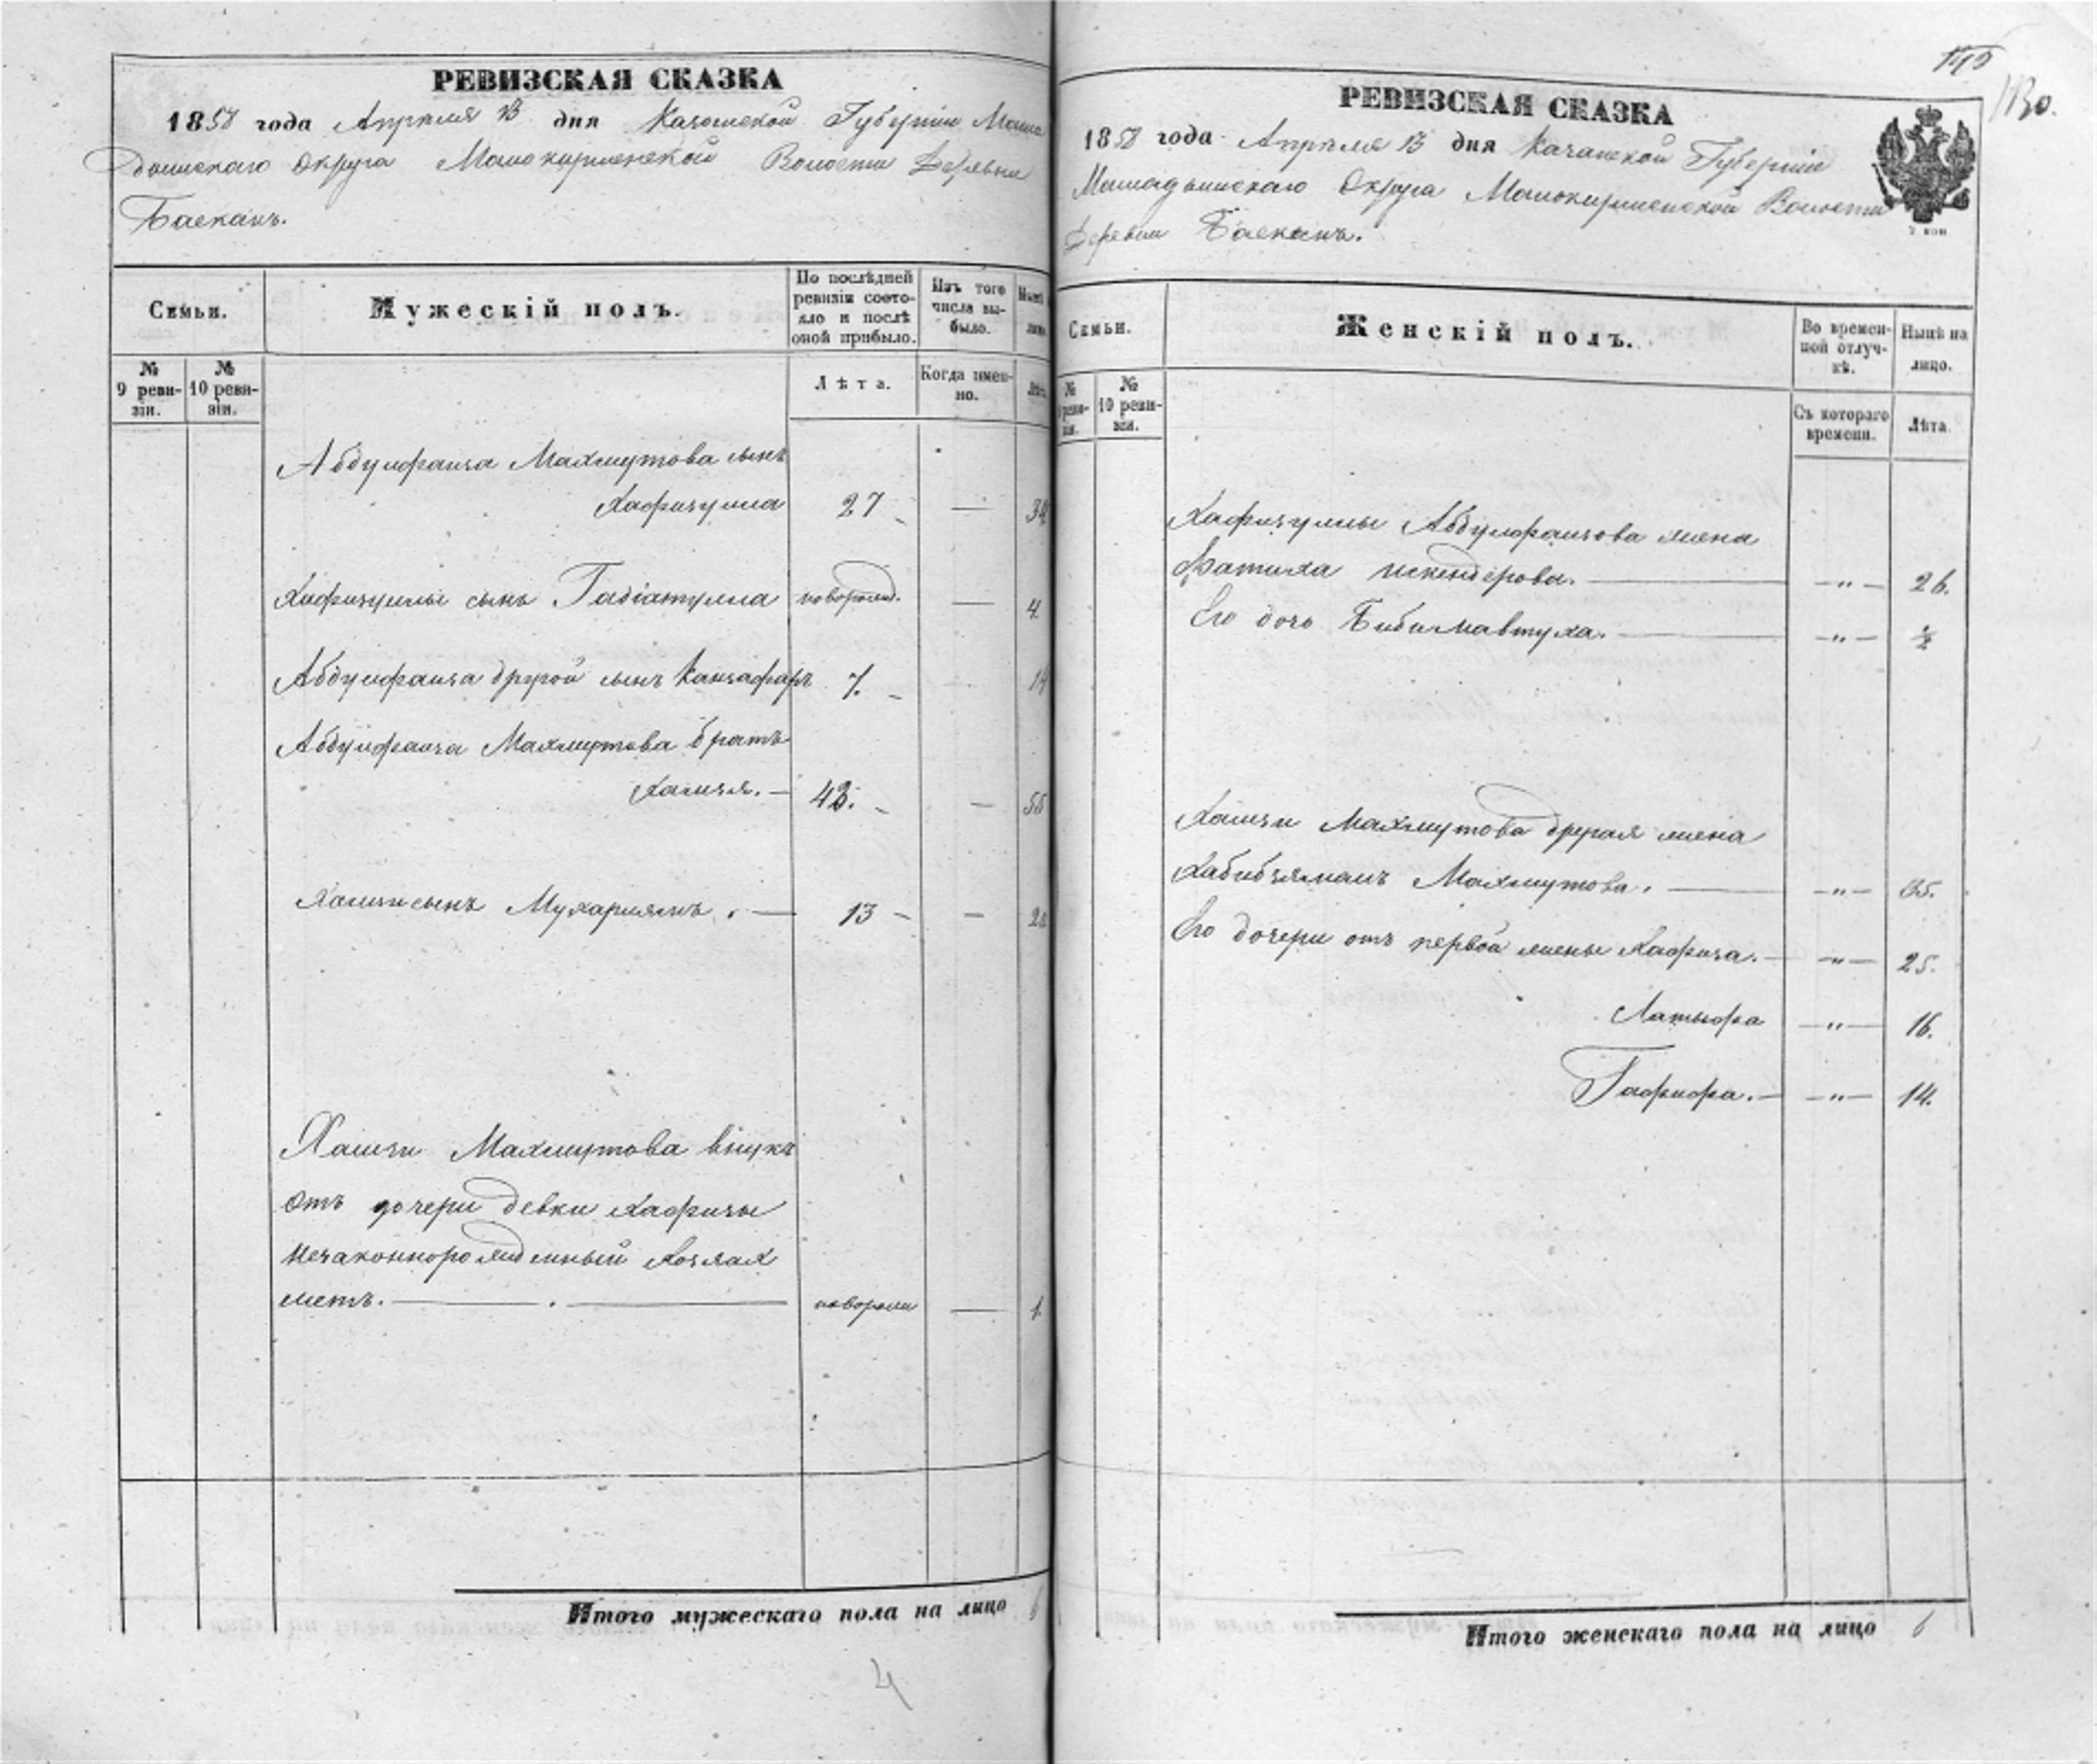 РЕВИЗСКАЯ СКАЗКА
1858 года Апреля 13 дня Казанской Губернiи Мама
дышскаго Округа Малокирменской Волости Деревни
Баекань.
Семьи.
Мужескiй полъ.
По послѣдней ревизiи состо-яло и послѣ оной прибыло.
Изъ того числа вы-было.
№ 9 реви-зiи.
№ 10 реви-зiи.
Лѣта.
Когда имен-но.
Абдулфаиза Махмутова сынъ
Хафизулла 27 — 34
Хафизуллы сынъ Гадiатулла новорожд. — 4
Абдулфаиза другой сынъ Канзафаръ 7. — 14
Абдулфаиза Махмутова братъ
Хамзя. — 48. — 55
Хамзи сынъ Мухарямъ. — 13 — — 20
Хамзи Махмутова внукъ
отъ дочери девки Хафизы
незаконнорожденный
метъ. — новорожд — 1.
Итого мужескаго пола на лицо 6
4
195
130.
РЕВИЗСКАЯ СКАЗКА
1858 года Апреля 13 дня Казанской Губернiи
Мамадышскаго Округа Малокирменской Волости
Деревни Баекань.
Семьи.
Женскiй полъ.
Во времен-ной отлуч-кѣ.
Нынѣ на лицо.
№ реви-зiи.
№ 10 реви-зiи.
Съ котораго времени.
Лѣта.
Хафизуллы Абдулфаизова жена
Фатиха Искендерова. — — „ — 26.
Его дочь Бибимавтуха. — — „ — ½
Хамзи Махмутова другая жена
Хабибзяманъ Махмутова. — — „ — 35.
Его дочери отъ первой жены Хафиза. — — „ — 25.
Латыфа — „ — 16.
Гафифа. — — „ — 14.
Итого женскаго пола на лицо 6